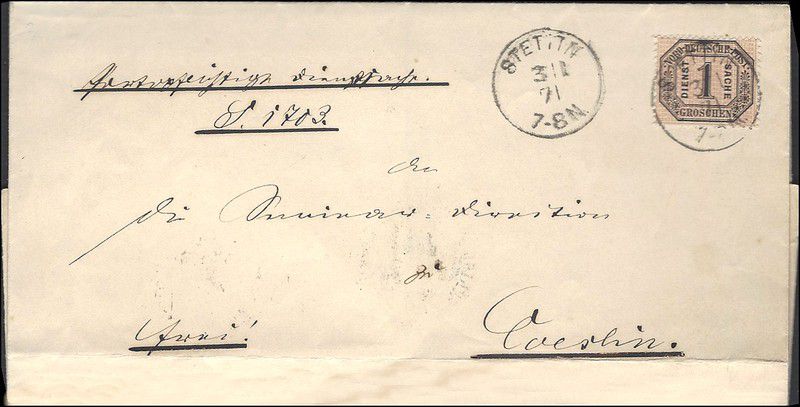 Portopflichtige Dienstsache.
S. 1703.
STETTIN
3 11
71
7-8N.
NORD-DEUTSCHE-POST
DIENST 1 SACHE
GROSCHEN
An
die Seminar-Direction
zu
frei! Coeslin.